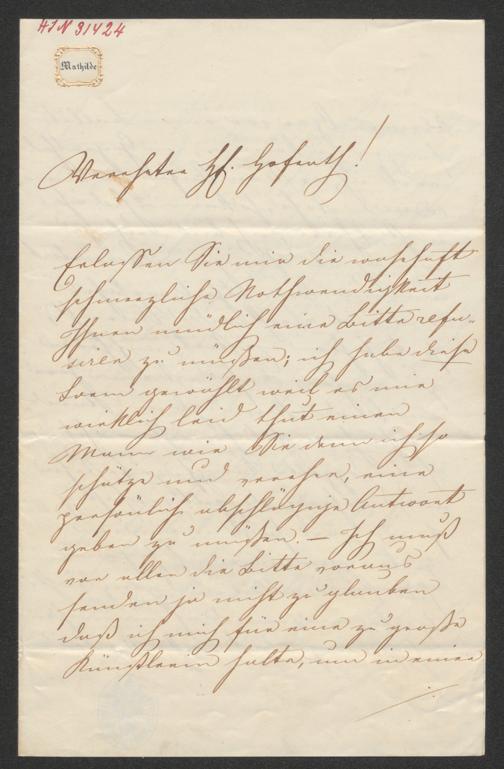 HIN 31424
Mathilde
Verehrter H. Hofrath!
Erlassen Sie mir die wahrhaft
schmerzliche Nothwendigkeit
Ihnen mündlich eine Bitte refu-
siren zu müßen; ich habe diese
Form gewählt weil es mir
wirklich leid thut einen
Mann wie Sie den ich so
schätze und verehre, eine
persönlich abschlägige Antwort
geben zu müßen. – Ich muß
vor allen die Bitte voraus
senden ja nicht zu glauben
daß ich mich für eine zu große
Künstlerin halte, um in einer